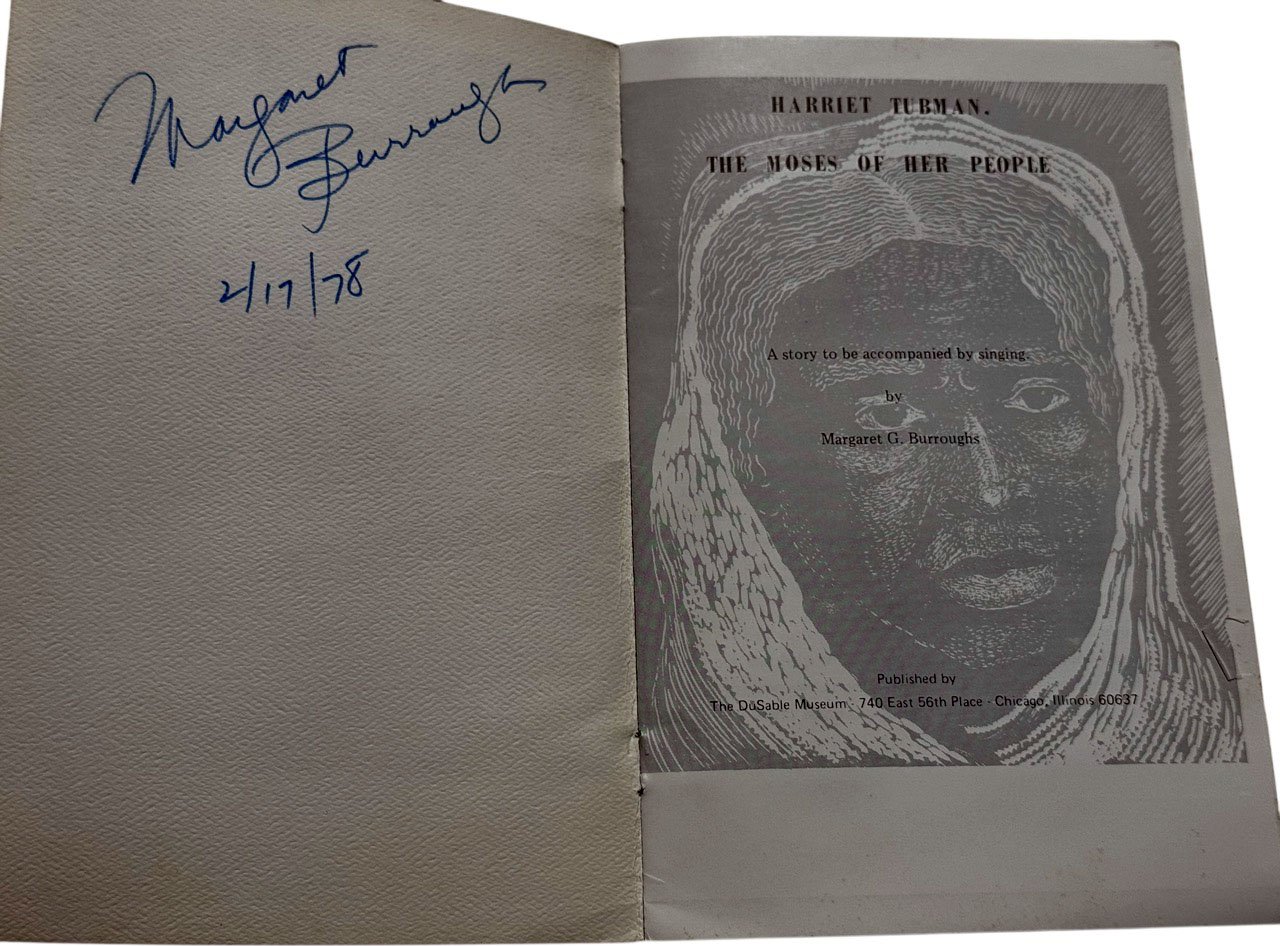 Margaret
Burroughs
2/17/78
HARRIET TUBMAN.
THE MOSES OF HER PEOPLE
A story to be accompanied by singing.
by
Margaret G. Burroughs
Published by
The DuSable Museum · 740 East 56th Place · Chicago, Illinois 60637